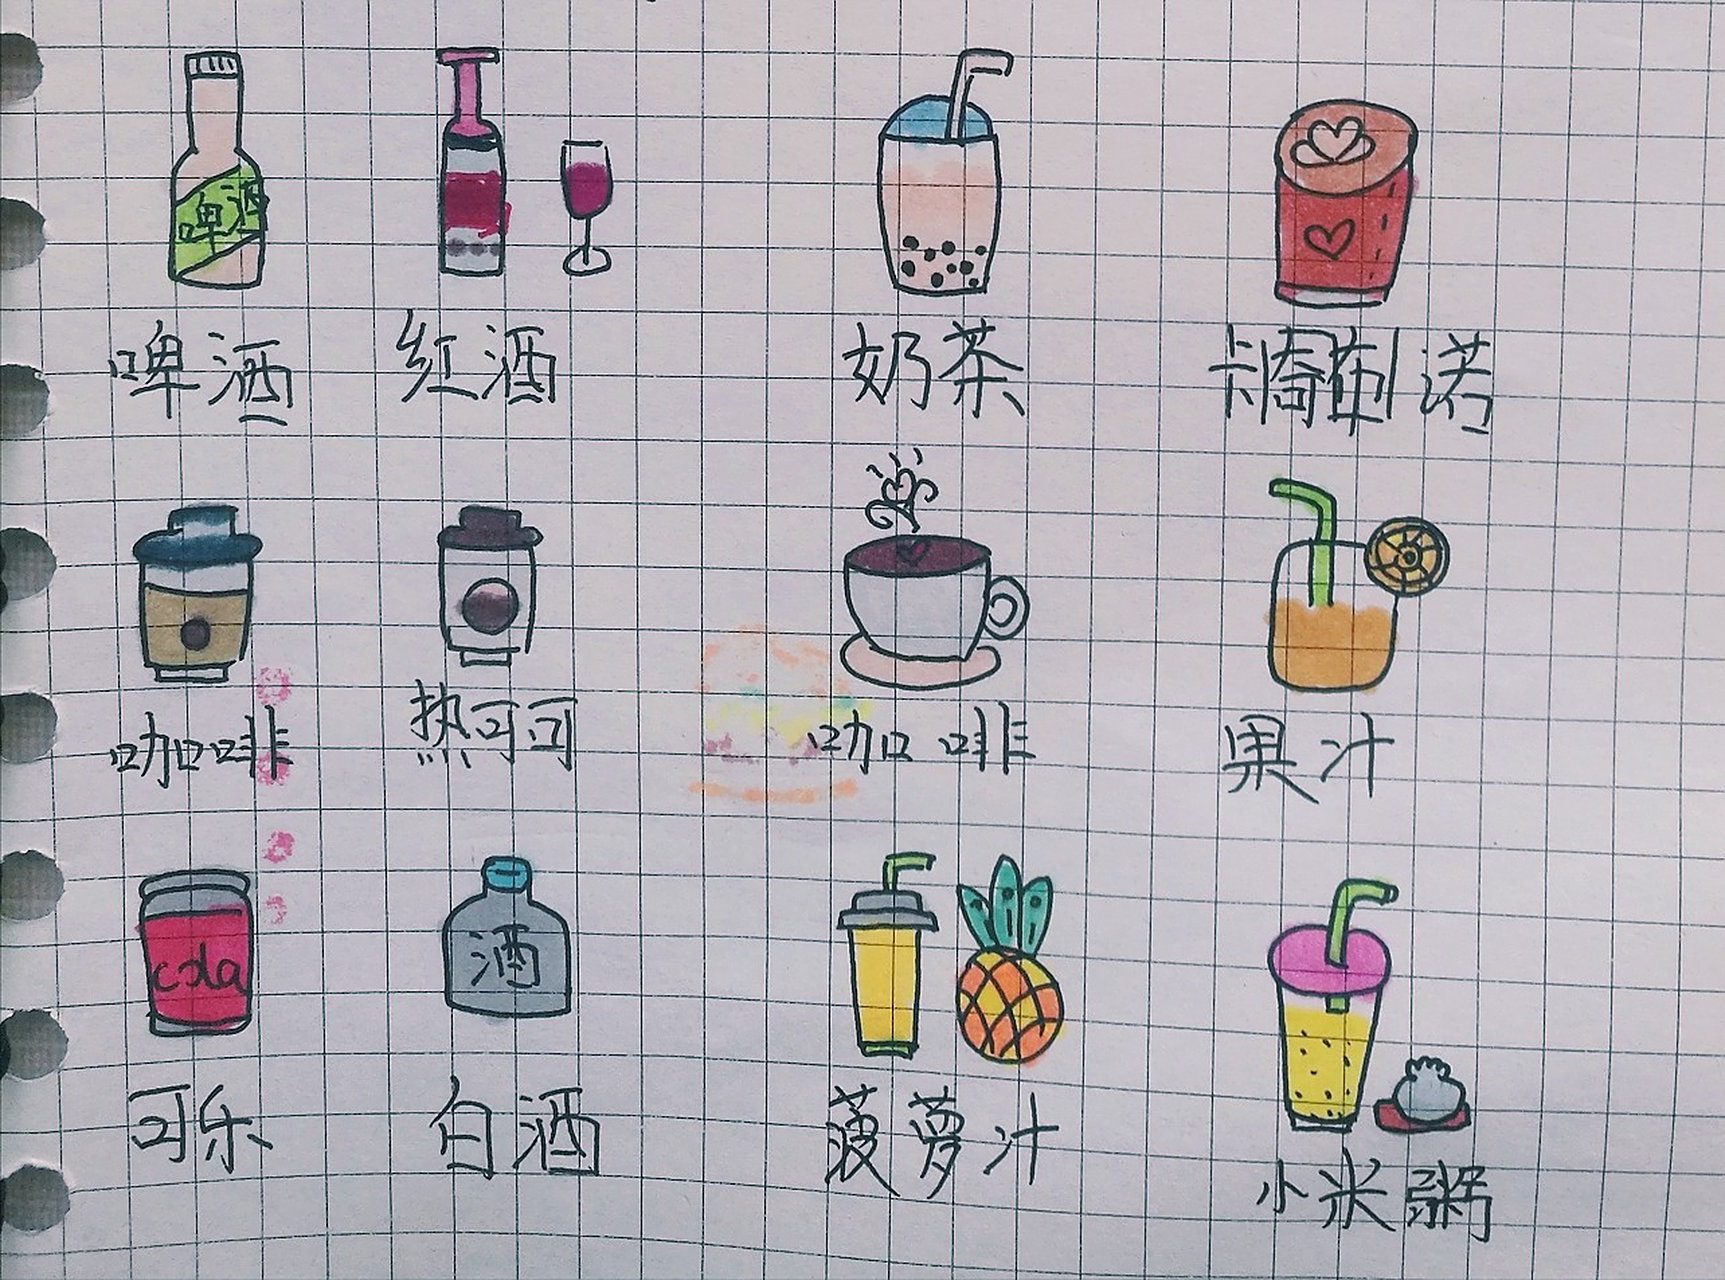 啤酒
啤酒 红酒 奶茶 卡布诺
咖啡 热可可 咖啡 果汁
cola
酒
可乐 白酒 菠萝汁 小米粥